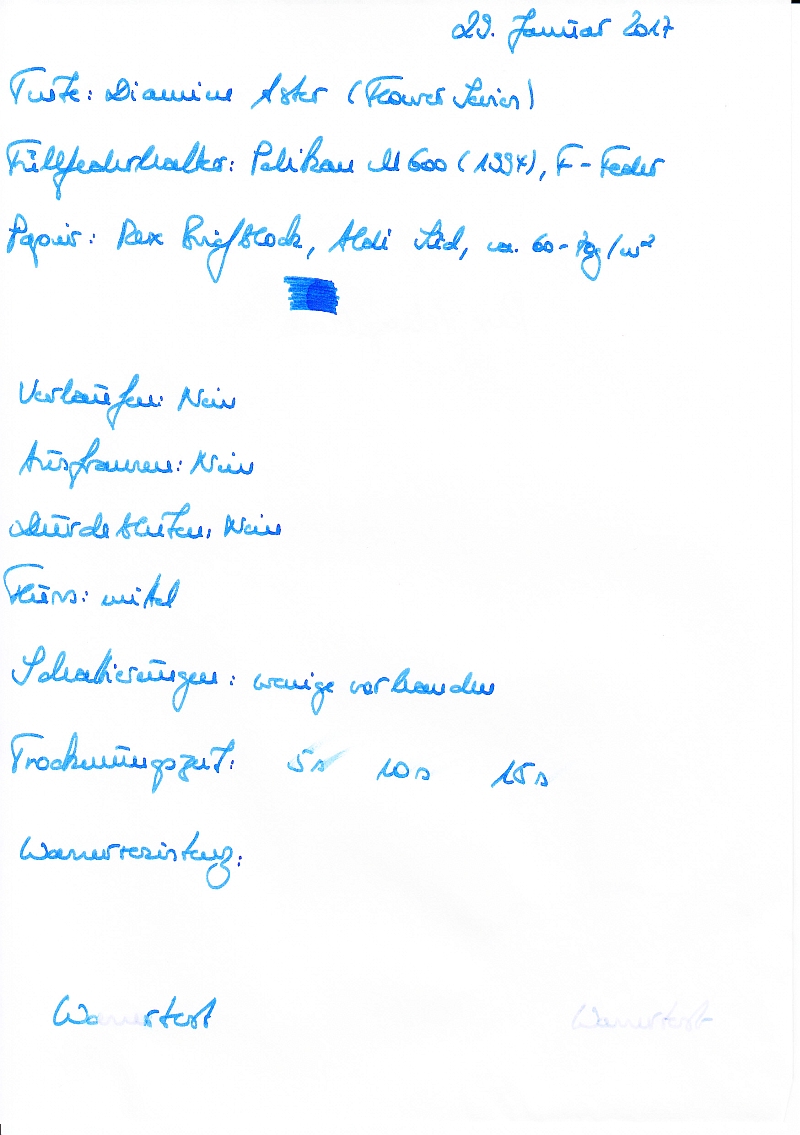 29. Januar 2017
Tinte: Diamine Aster (Flower Series)
Füllfederhalter: Pelikan M600 (1997), F-Feder
Papier: Rex Briefblock, Aldi Süd, ca. 60-70g/m²
Verlaufen: Nein
Ausfransen: Nein
Durchbluten: Nein
Fluss: mittel
Schattierungen: wenige vorhanden
Trocknungszeit: 5s 10s 15s
Wasserresistenz:
Wassertest Wassertest